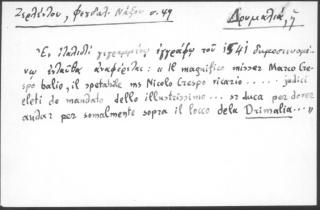 Ζερλέντου, Φεουδαλ. Νάξου σ. 49
Δρυμαλιά, ἡ
Ἐν ἰταλιστὶ γεγραμμένῳ ἐγγράφῳ τοῦ 1541 δημοσιευομέ-
νῳ ἐνταῦθα ἀναφέρεται: « Il magnifico misser Marco Cre-
spo balio, il spetabile ms Nicolo Crespo vicario ..... judici
eleti de mandato dello illustrissimo ... sr duca per dover
andar per somalmente sopra il locco dela Drimalia... »